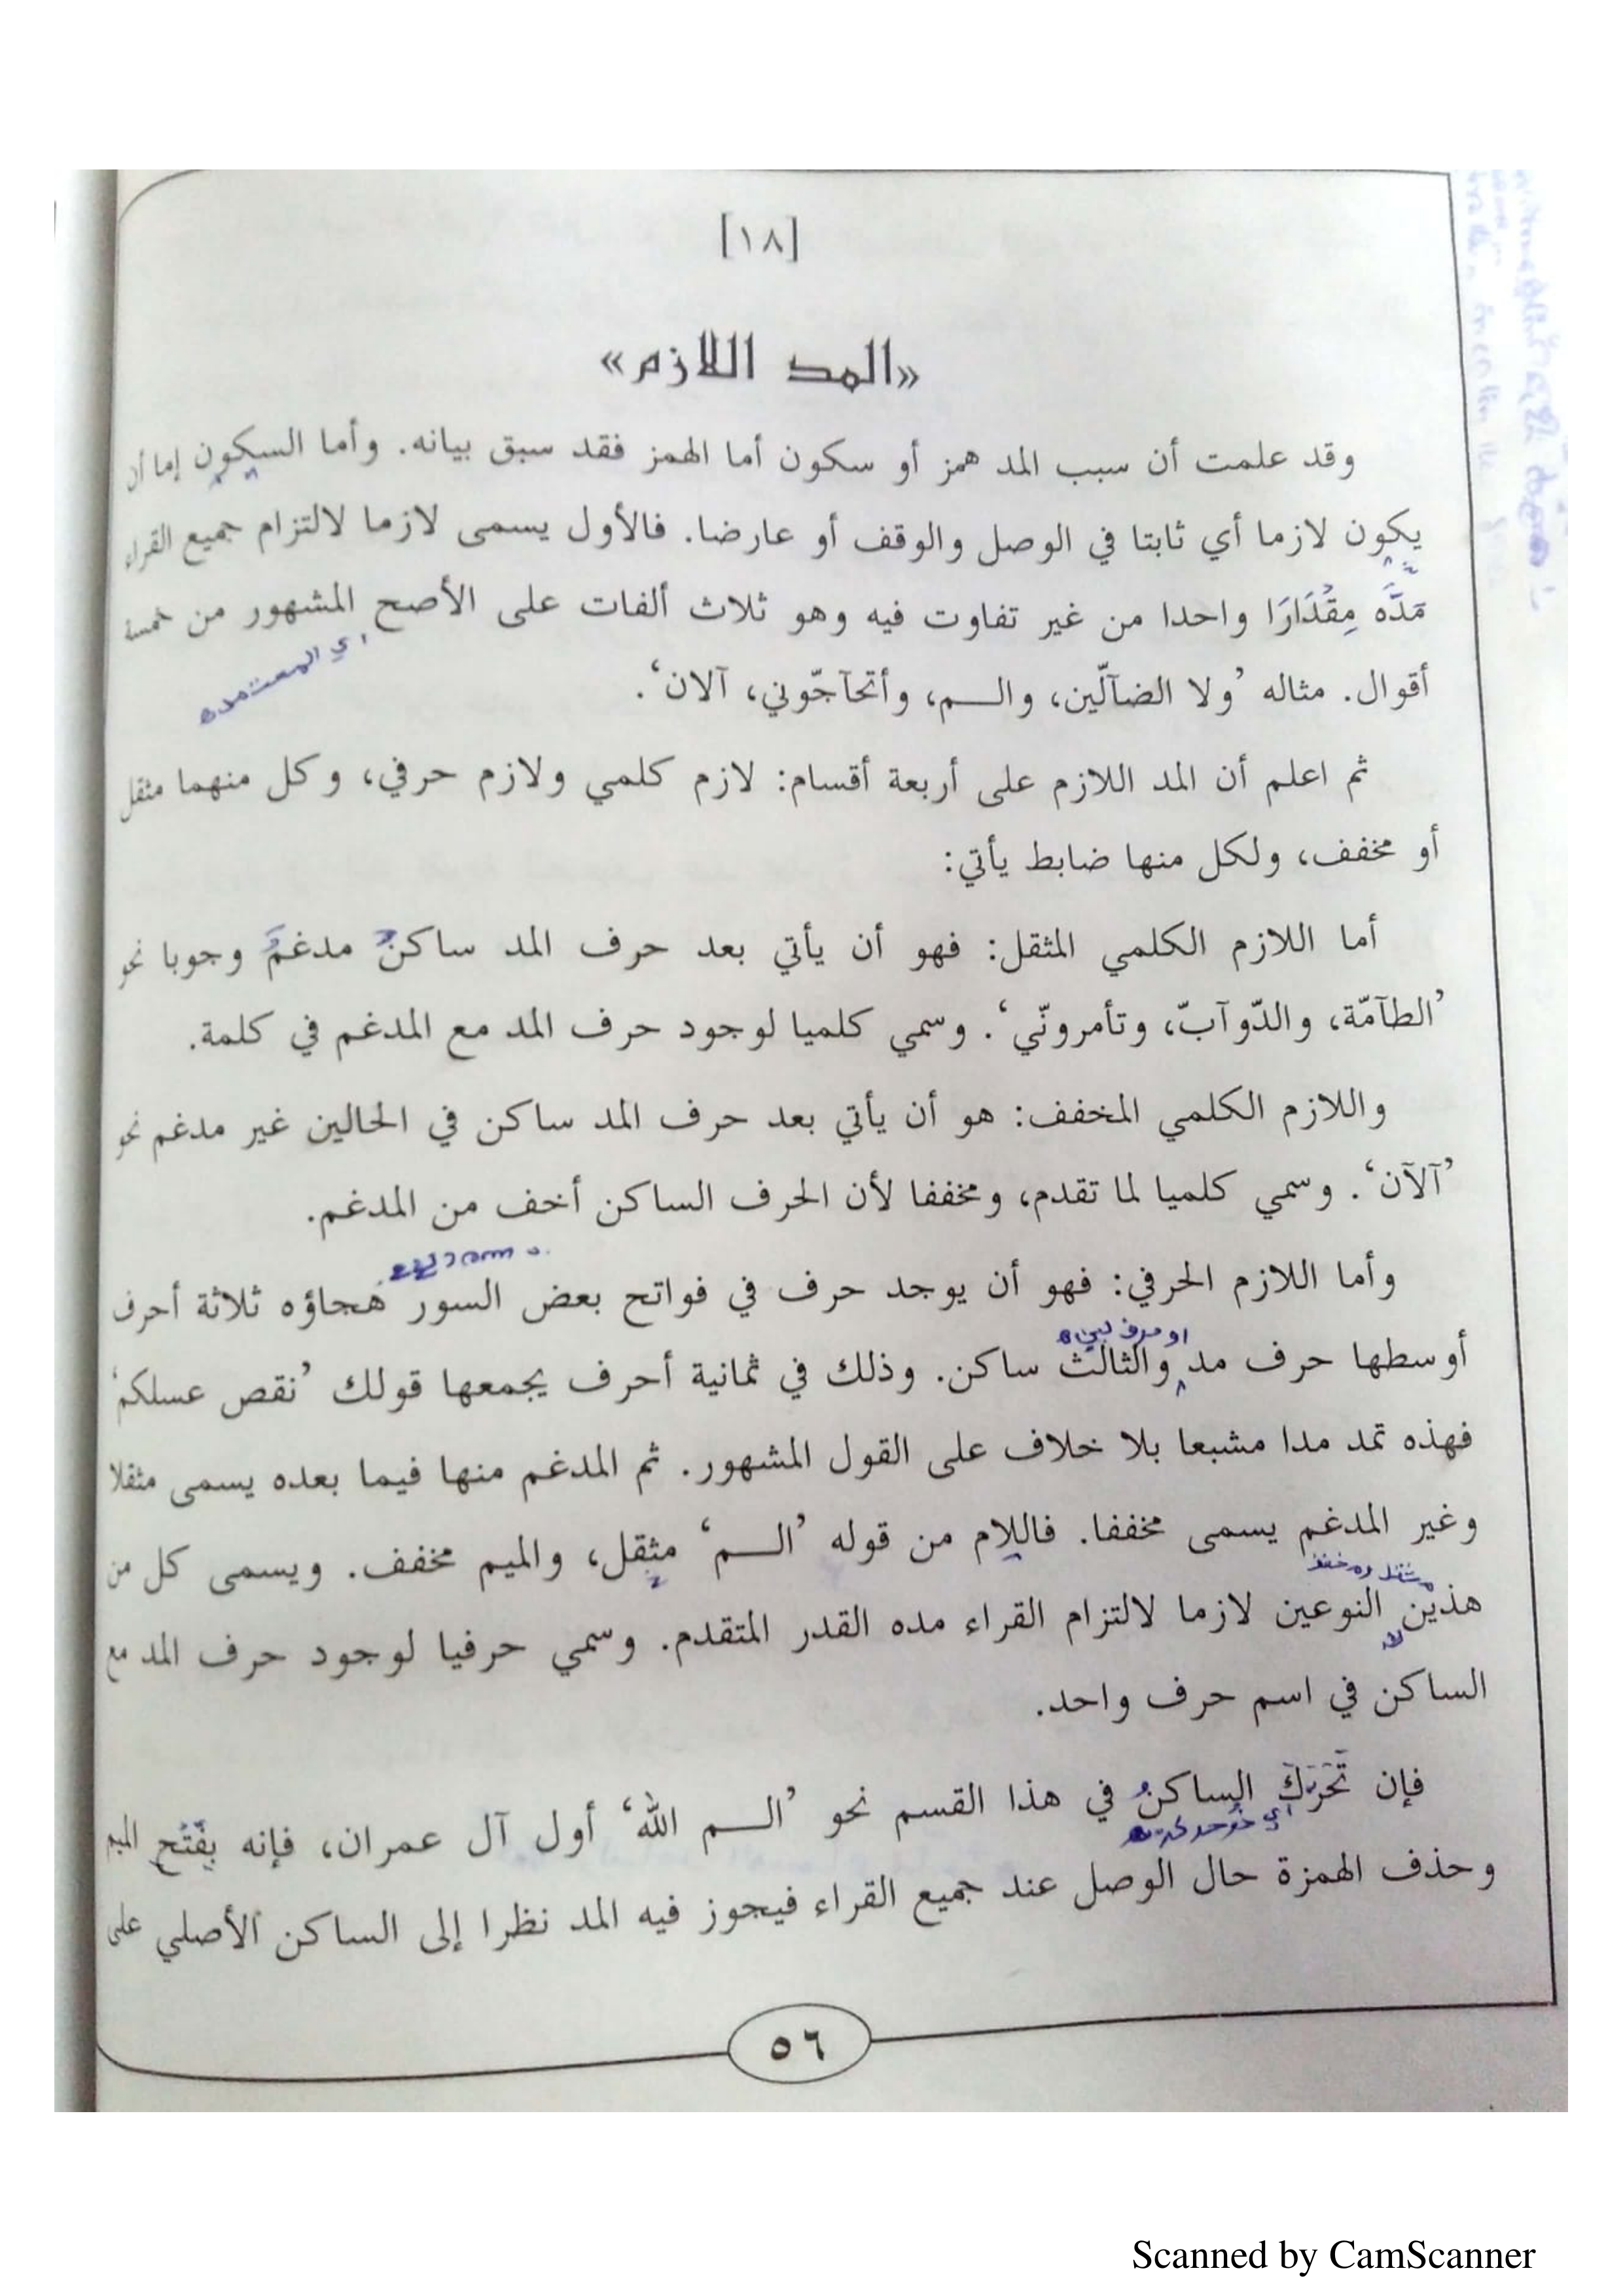 [١٨]
«المد اللازم»
وقد علمت أن سبب المد همز أو سكون أما الهمز فقد سبق بيانه. وأما السكون إما أن
يكون لازما أي ثابتا في الوصل والوقف أو عارضا. فالأول يسمى لازما لالتزام جميع القراء
مَدَّه مِقْدَارَا واحدا من غير تفاوت فيه وهو ثلاث ألفات على الأصح المشهور من خمسة
اي المعتمده
أقوال. مثاله ’ولا الضآلّين، والــم، وأتحآجّوني، آلان‘.
ثم اعلم أن المد اللازم على أربعة أقسام: لازم كلمي ولازم حرفي، وكل منهما مثقل
أو مخفف، ولكل منها ضابط يأتي:
أما اللازم الكلمي المثقل: فهو أن يأتي بعد حرف المد ساكن مدغم وجوبا نحو
’الطآمّة، والدّوآبّ، وتأمرونّي‘. وسمي كلميا لوجود حرف المد مع المدغم في كلمة.
واللازم الكلمي المخفف: هو أن يأتي بعد حرف المد ساكن في الحالين غير مدغم نحو
’آلآن‘. وسمي كلميا لما تقدم، ومخففا لأن الحرف الساكن أخف من المدغم.
وأما اللازم الحرفي: فهو أن يوجد حرف في فواتح بعض السور هجاؤه ثلاثة أحرف
أوسطها حرف مد والثالث ساكن. وذلك في ثمانية أحرف يجمعها قولك ’نقص عسلكم‘
فهذه تمد مدا مشبعا بلا خلاف على القول المشهور. ثم المدغم منها فيما بعده يسمى مثقلا
وغير المدغم يسمى مخففا. فاللام من قوله ’الــم‘ مثقل، والميم مخفف. ويسمى كل من
مثقل ومخفف
هذين النوعين لازما لالتزام القراء مده القدر المتقدم. وسمي حرفيا لوجود حرف المد مع
الساكن في اسم حرف واحد.
فإن تَحَرَّكَ الساكنُ في هذا القسم نحو ’الــم الله‘ أول آل عمران، فإنه بِفَتْحِ الميم
وحذف الهمزة حال الوصل عند جميع القراء فيجوز فيه المد نظرا إلى الساكن الأصلي على
٥٦
Scanned by CamScanner